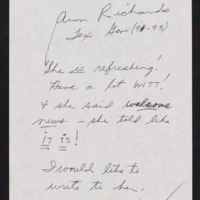 Ann Richards
Tex Gov (91-95)
She is refreshing!
Have a lot WITT!
& she said welcome
news - she told like
IT IS!
I would like to
write to her.